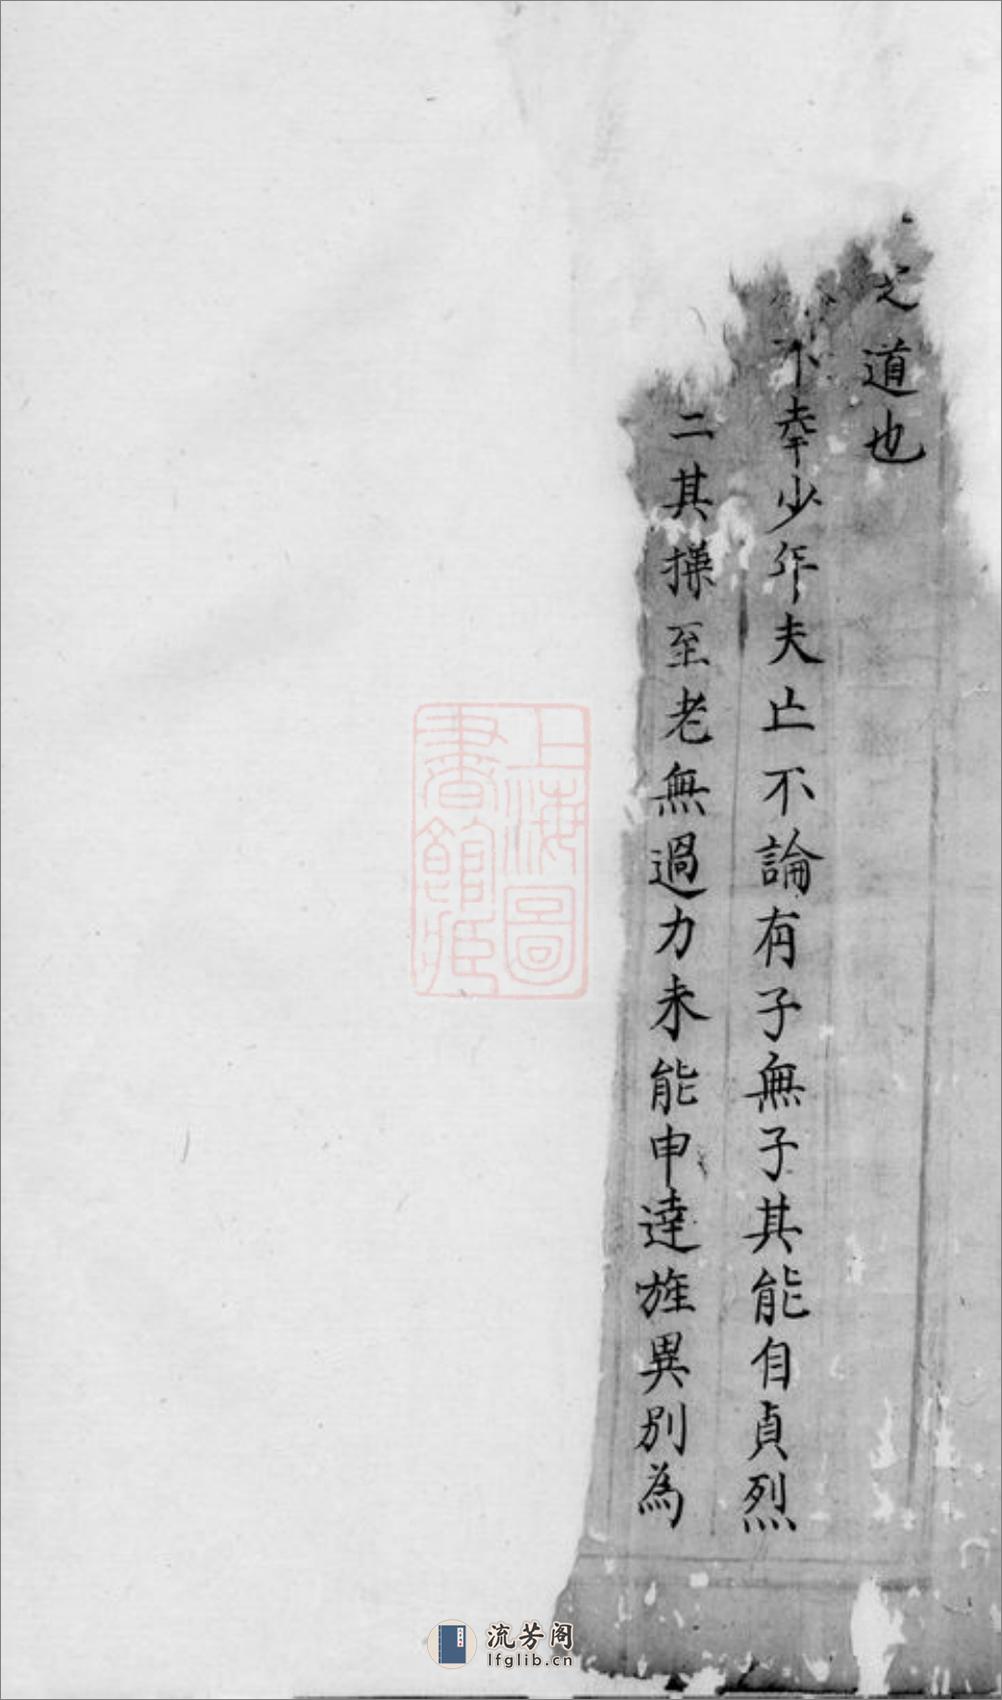 之道也
不幸少年夫亡不論有子無子其能自貞烈
二其操至老無過力未能申達旌異別為
上海圖
書館藏
流芳阁
lfglib.cn